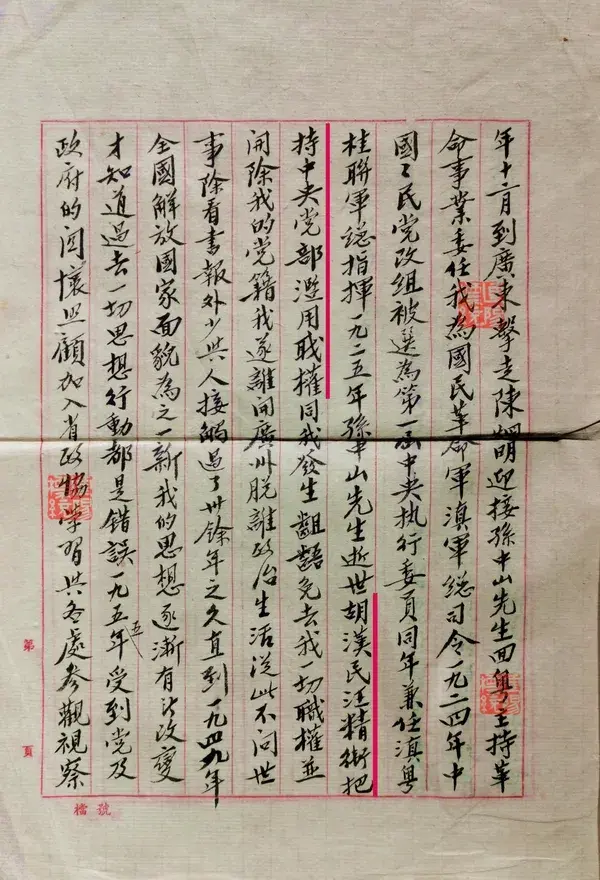 年十二月到廣東擊走陳炯明迎接孫中山先生回粵主持革
命事業委任我為國民革命軍滇軍總司令一九二四年中
國〻民党改組被選為第一屆中央执行委員同年兼任滇粵
桂聯軍總指揮一九二五年孫中山先生逝世胡漢民汪精衛把
持中央党部濫用职權同我發生齟齬免去我一切職權並
開除我的党籍我遂離開廣州脱離政治生活從此不问世
事除看書報外少與人接觸過了卅餘年之久直到一九四九年
全國解放國家面貌為之一新我的思想逐漸有所改變
才知道過去一切思想行動都是錯誤一九五五年受到党及
政府的関懷照顧加入省政協学習與各處參觀視察
第 頁
檔號